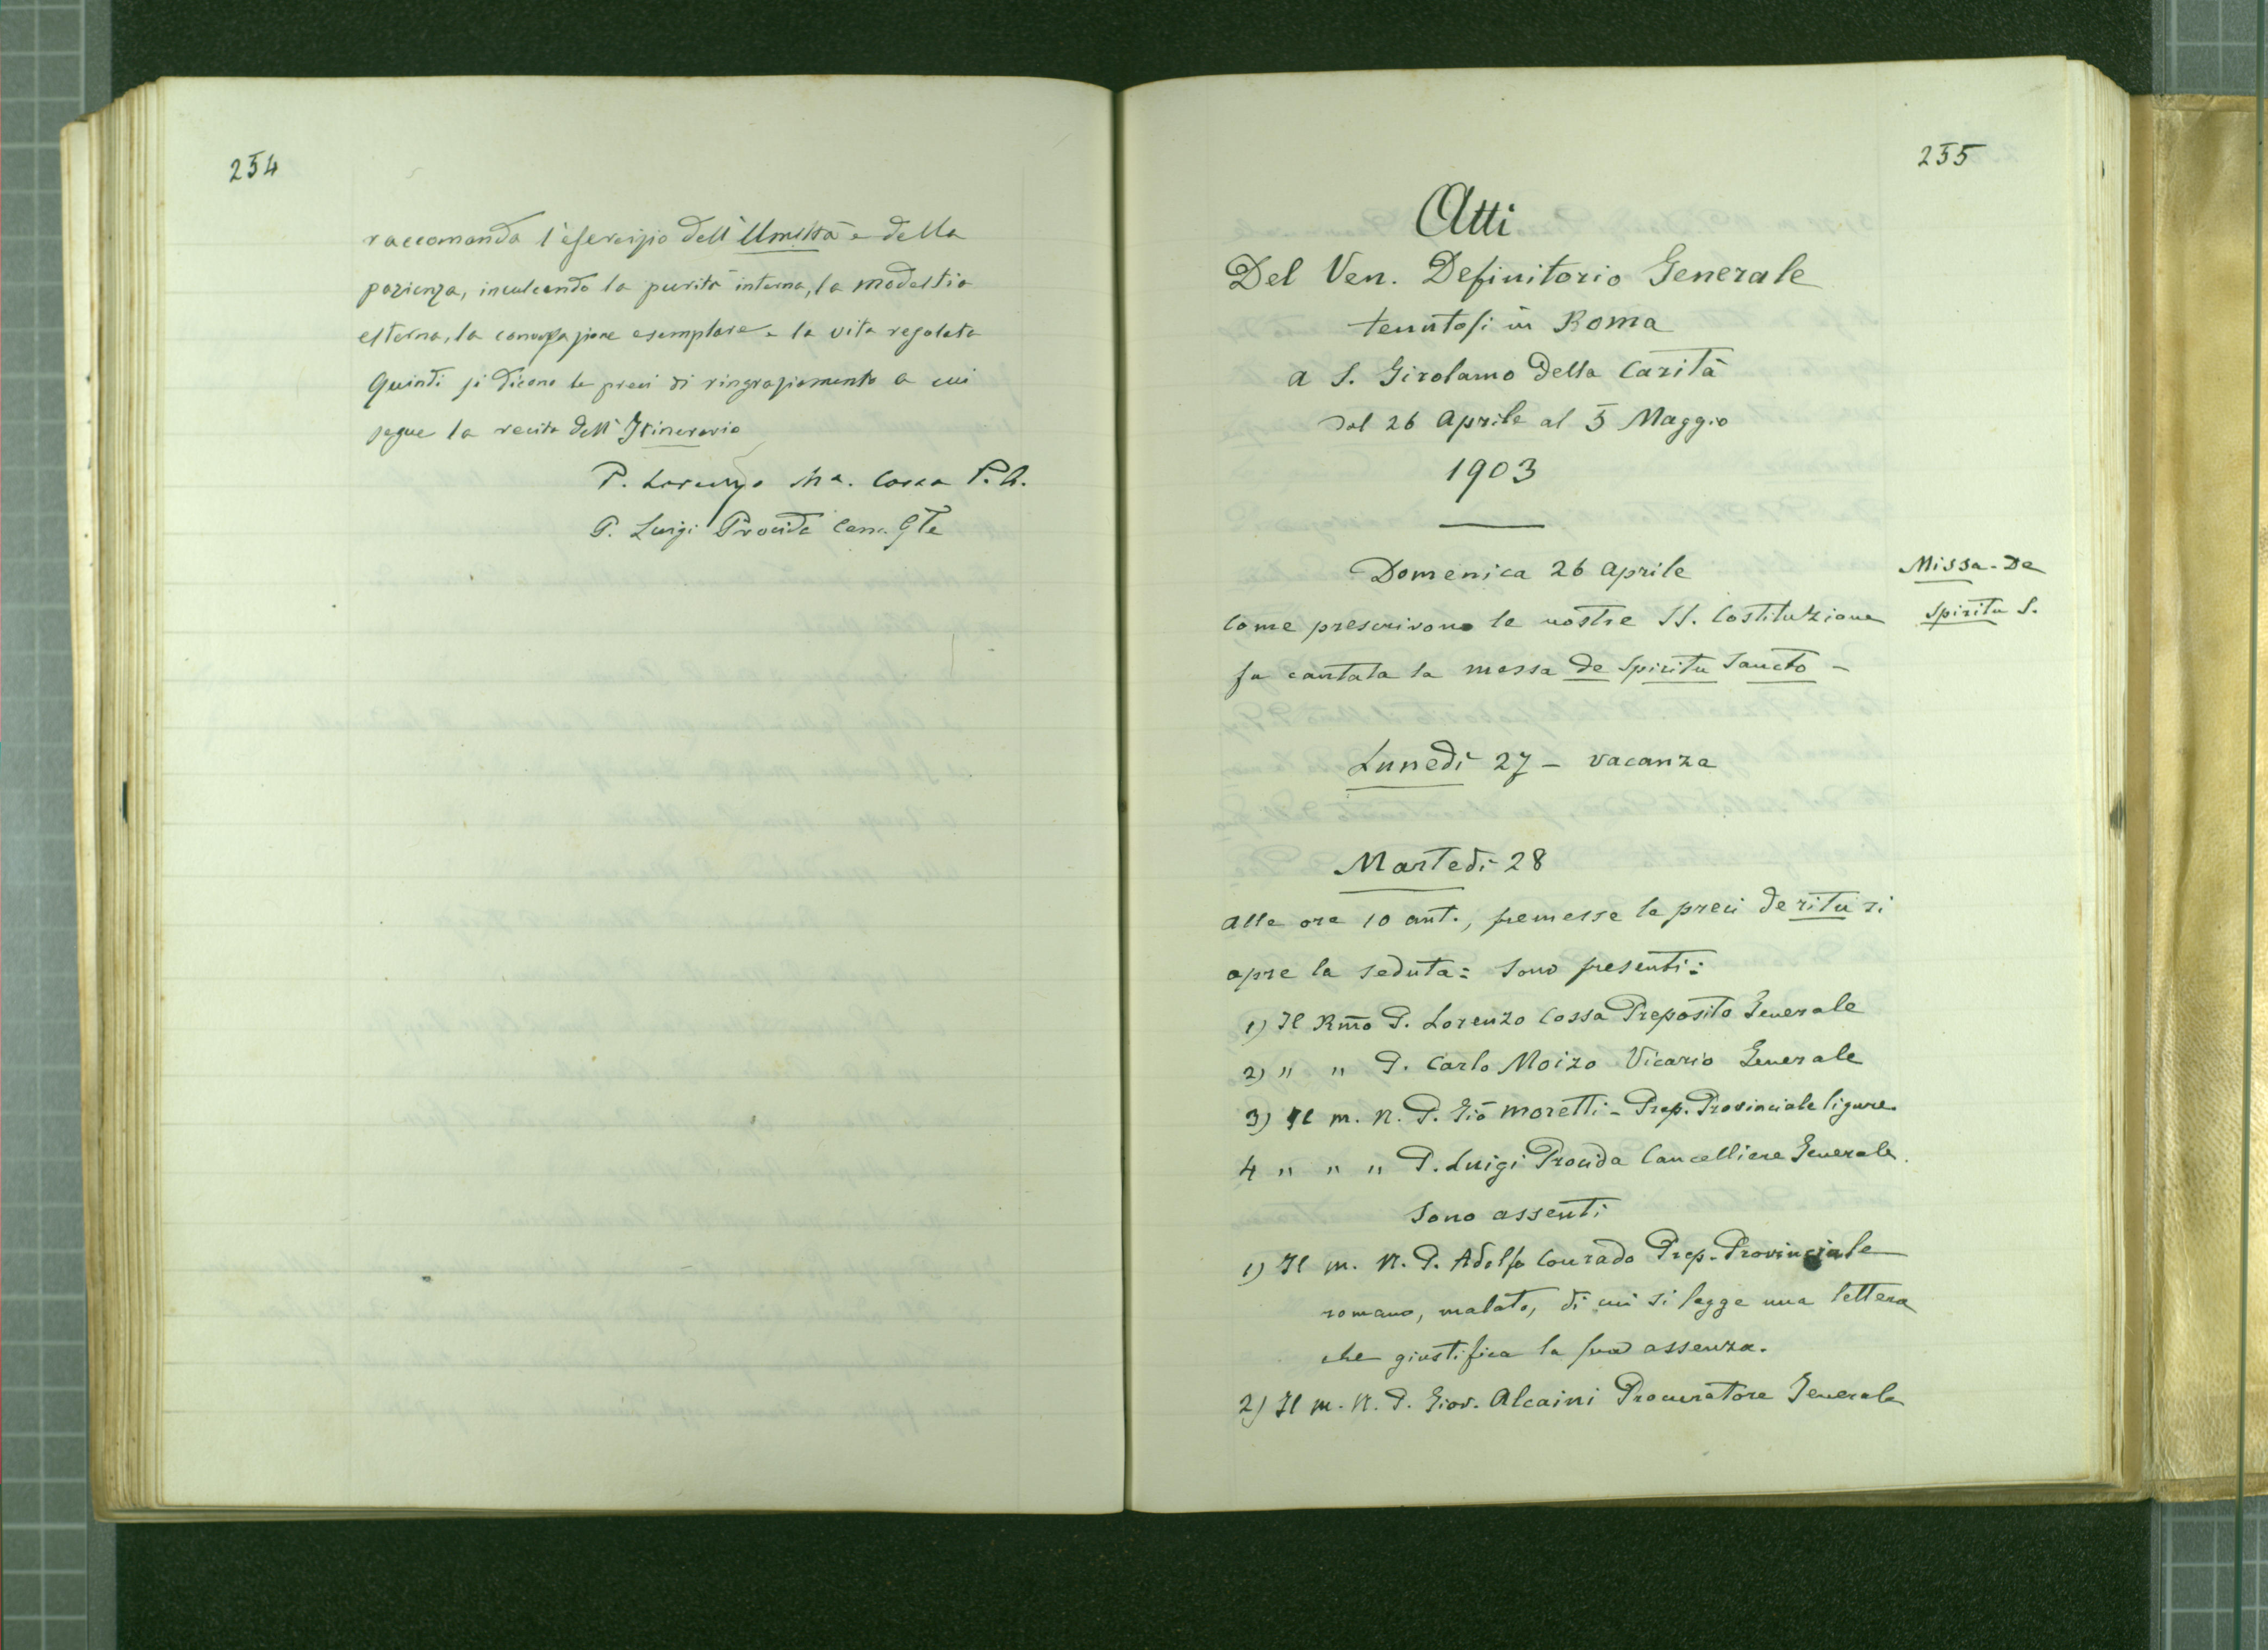 254
raccomanda l'esercizio dell'Umiltà e della
pazienza, inculcando la purità interna, la modestia
esterna, la conversazione esemplare e la vita regolata
Quindi si dicono le preci di ringraziamento a cui
segue la recita dell'Itinerario
P. Lorenzo Ma. Cossa P.G.
P. Luigi Procida Canc. Gle
255
Atti
Del Ven. Definitorio Generale
tenutosi in Roma
a S. Girolamo della Carità
dal 26 Aprile al 5 Maggio
1903
Domenica 26 Aprile
Missa - De
Spiritu S.
Come prescrivono le nostre SS. Costituzione
fu cantata la messa de Spiritu Sancto -
Lunedì 27 - vacanza
Martedì 28
Alle ore 10 ant., premesse le preci de ritu si
apre la seduta: Sono presenti:
1) Il Rm̃o P. Lorenzo Cossa Preposito Generale
2) " " P. Carlo Moizo Vicario Generale
3) Il m. R. P. Giõ Moretti - Prep. Provinciale ligure.
4 " " " P. Luigi Procida Cancelliere Generale.
Sono assenti
1) Il m. R. P. Adolfo Conrado Prep. Provinciale
romano, malato, di cui si legge una lettera
che giustifica la sua assenza.
2) Il M. R. P. Giov. Alcaini Procuratore Generale